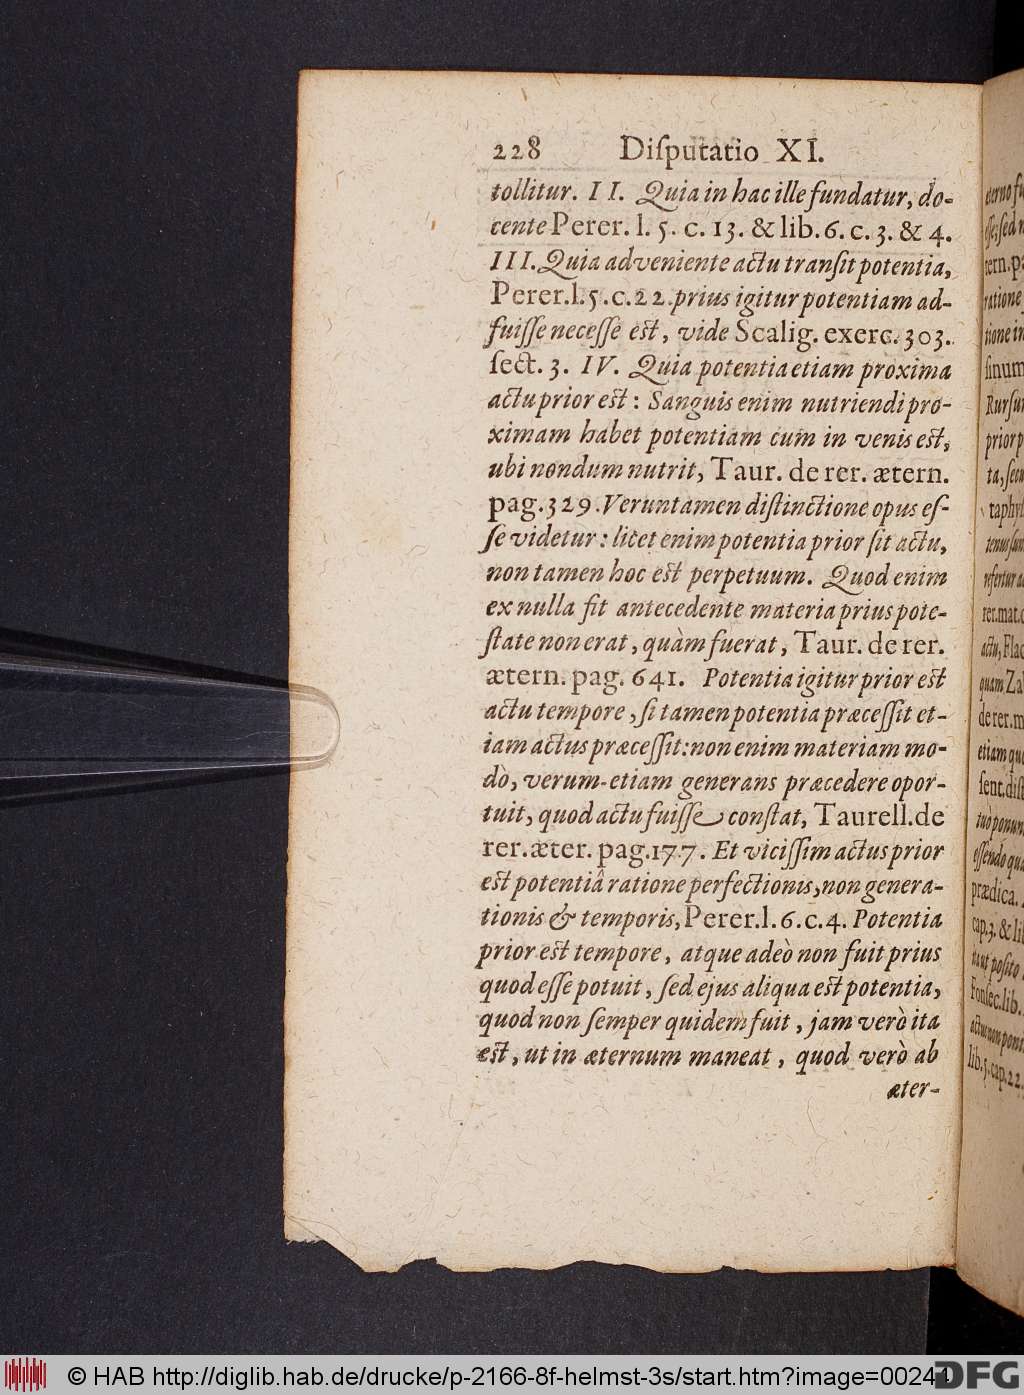 228 Diſputatio XI.
tollitur. II. Quia in hac ille fundatur, do-
cente Perer. l. 5. c. 13. & lib. 6. c. 3. & 4.
III. Quia adveniente actu tranſit potentia,
Perer. l. 5. c. 22. prius igitur potentiam ad-
fuiſſe neceſſe eſt, vide Scalig. exerc. 303.
ſect. 3. IV. Quia potentia etiam proxima
actu prior eſt: Sanguis enim nutriendi pro-
ximam habet potentiam cum in venis eſt,
ubi nondum nutrit, Taur. de rer. ætern.
pag. 329. Veruntamen diſtinctione opus eſ-
ſe videtur: licet enim potentia prior ſit actu,
non tamen hoc eſt perpetuum. Quod enim
ex nulla fit antecedente materia prius pote-
ſtate non erat, quàm fuerat, Taur. de rer.
ætern. pag. 641. Potentia igitur prior eſt
actu tempore, ſi tamen potentia præceſſit et-
iam actus præceſſit: non enim materiam mo-
dò, verum etiam generans præcedere opor-
tuit, quod actu fuiſſe conſtat, Taurell. de
rer. æter. pag. 177. Et viciſſim actus prior
eſt potentiâ ratione perfectionis, non genera-
tionis & temporis, Perer. l. 6. c. 4. Potentia
prior eſt tempore, atque adeò non fuit prius
quod eſſe potuit, ſed ejus aliqua eſt potentia,
quod non ſemper quidem fuit, jam verò ita
eſt, ut in æternum maneat, quod verò ab
æter-
© HAB http://diglib.hab.de/drucke/p-2166-8f-helmst-3s/start.htm?image=00244
DFG